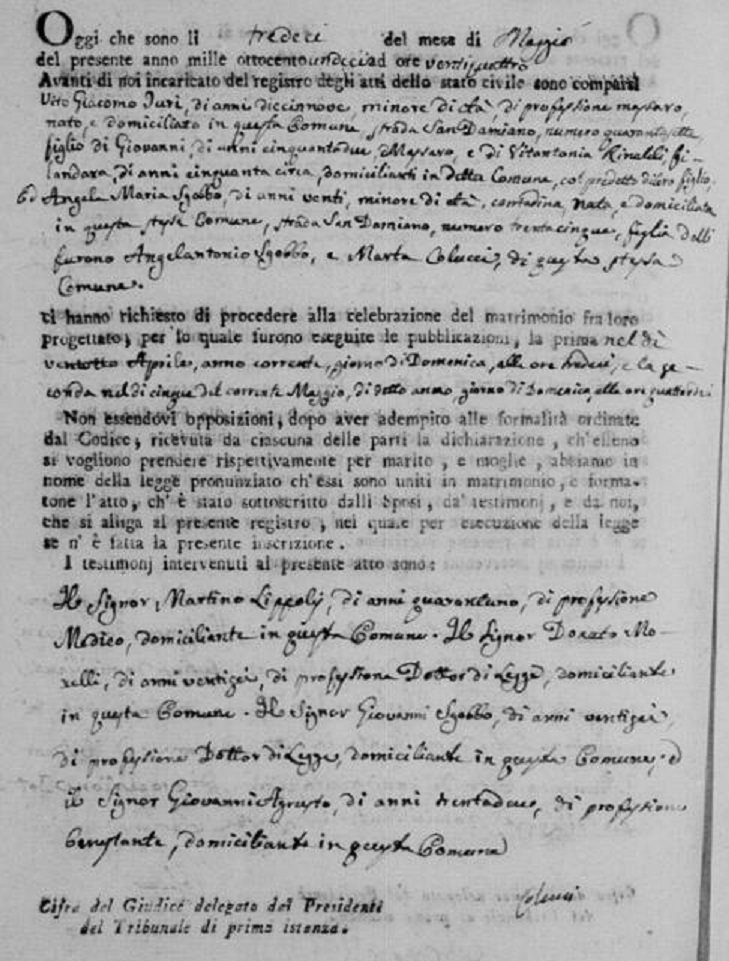 Oggi che sono li tredeci del mese di Maggio
del presente anno mille ottocento undeci ad ore ventiquattro
Avanti di noi incaricato del registro degli atti dello stato civile sono comparsi
Vito Giacomo Juri, di anni diecinnove, minore di età, di professione massaro,
nato, e domiciliato in questa Comune, strada San Damiano, numero quarantasette
figlio di Giovanni, di anni cinquantadue, Massaro, e di Vitantonia Rinaldi, fi-
landara, di anni cinquanta circa, domicilianti in detta Comune, col predetto di loro figlio.
Ed Angela Maria Sgobbo, di anni venti, minore di età, contadina, nata, e domiciliata
in questa stessa Comune, strada San Damiano, numero trentacinque, figlia delli
furono Angelantonio Sgobbo, e Marta Colucci, di questa stessa
Comune.
ci hanno richiesto di procedere alla celebrazione del matrimonio fra loro
progettato, per lo quale furono eseguite le pubblicazioni, la prima nel dì
ventotto Aprile, anno corrente, giorno di Domenica, alle ore tredeci, e la se-
conda nel dì cinque del corrente Maggio, di detto anno, giorno di Domenica, alle ore quattordeci
Non essendovi opposizioni, dopo aver adempito alle formalità ordinate
dal Codice, ricevuta da ciascuna delle parti la dichiarazione, ch'elleno
si vogliono prendere rispettivamente per marito, e moglie, abbiamo in
nome della legge pronunziato ch'essi sono uniti in matrimonio, e forma-
tone l'atto, ch'è stato sottoscritto dalli Sposi, da' testimonj, e da noi,
che si alliga al presente registro, nel quale per esecuzione della legge
se n'è fatta la presente inscrizione.
I testimonj intervenuti al presente atto sono:
Il Signor Martino Lippolis, di anni quarantuno, di professione
Medico, domiciliante in questa Comune. Il Signor Donato Mo-
relli, di anni ventisei, di professione Dottor di Legge, domiciliante
in questa Comune. Il Signor Giovanni Sgobbo, di anni ventisei,
di professione Dottor di Legge, domiciliante in questa Comune; ed
il Signor Giovanni Agrusto, di anni trentadue, di professione
benestante, domiciliante in questa Comune
Cifra del Giudice delegato dal Presidente
del Tribunale di prima istanza.
Colucci